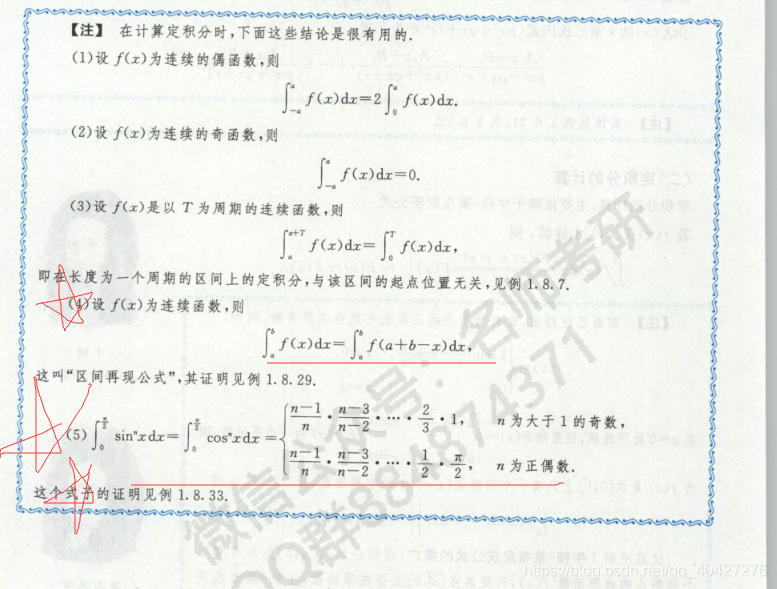 【注】 在计算定积分时,下面这些结论是很有用的.
(1)设 f(x)为连续的偶函数,则
∫_{-a}^{a} f(x)dx=2∫_{0}^{a} f(x)dx.
(2)设 f(x)为连续的奇函数,则
∫_{-a}^{a} f(x)dx=0.
(3)设 f(x)是以 T 为周期的连续函数,则
∫_{a}^{a+T} f(x)dx=∫_{0}^{T} f(x)dx,
即在长度为一个周期的区间上的定积分,与该区间的起点位置无关,见例 1.8.7.
(4)设 f(x)为连续函数,则
∫_{a}^{b} f(x)dx=∫_{a}^{b} f(a+b-x)dx,
这叫“区间再现公式”,其证明见例 1.8.29.
(5)∫_{0}^{π/2} sin^n xdx=∫_{0}^{π/2} cos^n xdx={ (n-1)/n · (n-3)/(n-2) · … · 2/3 · 1, n 为大于 1 的奇数,
(n-1)/n · (n-3)/(n-2) · … · 1/2 · π/2, n 为正偶数.
这个式子的证明见例 1.8.33.
微信公众号:名师考研
QQ群884874371
https://blog.csdn.net/qq_40427276